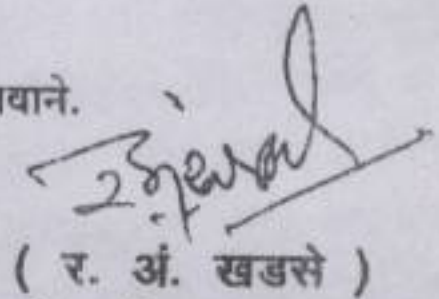 वाने.
( र. अं. खडसे )